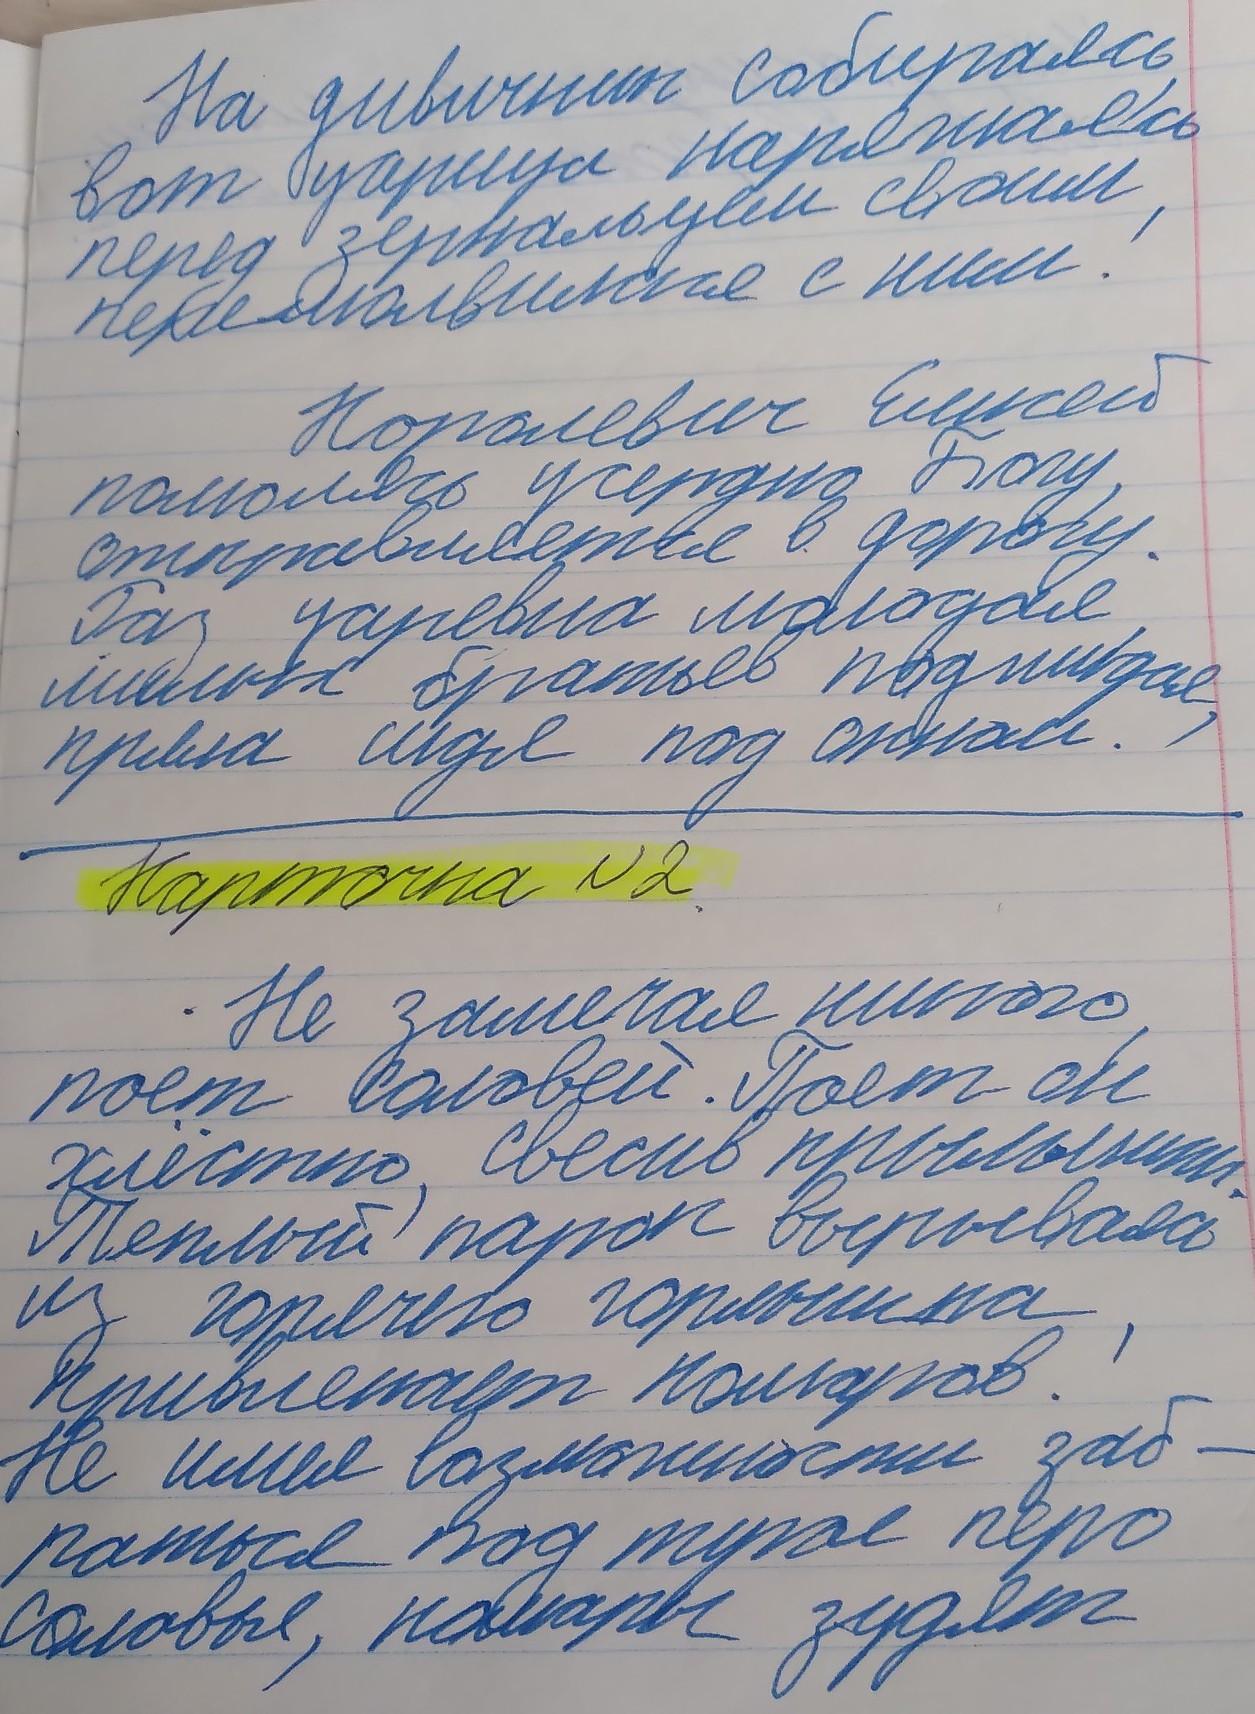 На дивичник собираясь,
вот царица наряжаясь
перед зеркальцем своим,
перемолвилася с ним.
Королевич Елисей
помолясь усердно Богу,
отправляется в дорогу.
Раз царевна молодая,
милых братьев поджидая,
пряла сидя под окном.
Карточка № 2.
Не замечая никого,
поет соловей. Поет он
хлёстко, свесив крылышки.
Теплый парок вырываясь
из горячего горлышка,
привлекает комаров.
Не имея возможности заб-
раться под тугое перо
соловья, комары зудят